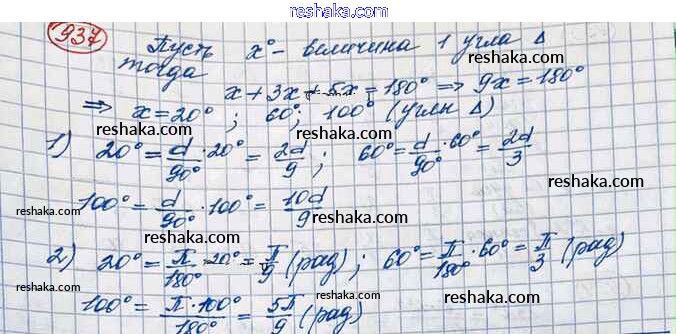 www.reshak.ru
937 Пусть x° – величина 1 угла Δ
reshaka.com
тогда
x + 3x + 5x = 180° => 9x = 180°
reshaka.com
=> x = 20° ; 60° ; 100° (углы Δ)
reshaka.com reshaka.com
1) 20° = d/90° · 20° = 2d/9 ; 60° = d/90° · 60° = 2d/3
reshaka.com reshaka.com
100° = d/90° · 100° = 10d/9
reshaka.com reshaka.com
2) 20° = π/180° · 20° = π/9 (рад) ; 60° = π/180° · 60° = π/3 (рад)
reshaka.com reshaka.com
100° = π · 100°/180° = 5π/9 (рад)
reshaka.com reshaka.com